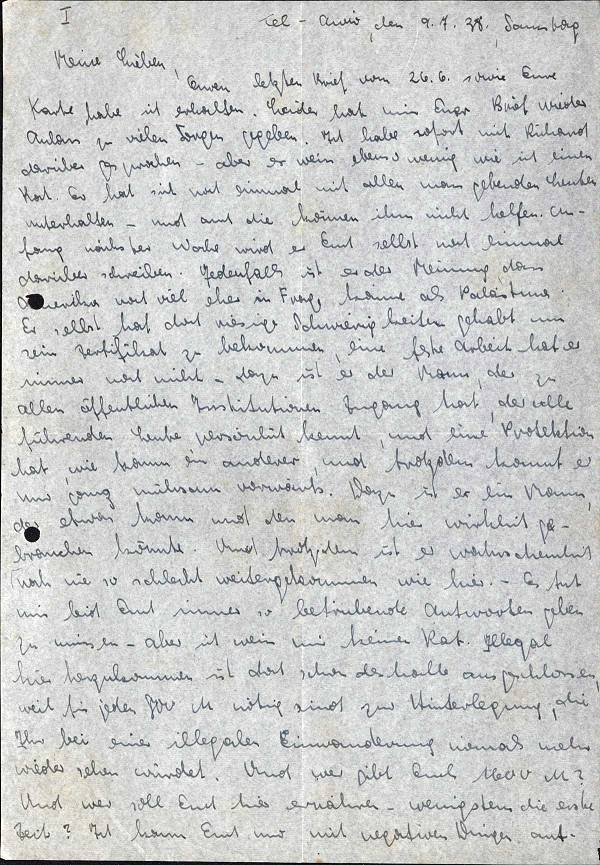 I
Tel-Aviv, den 9.7.38, Samstag
Meine Lieben,
Euren letzten Brief vom 26.6. sowie Eure
Karte habe ich erhalten. Leider hat mir Euer Brief wieder
Anlass zu vielen Sorgen gegeben. Ich habe sofort mit Richard
darüber gesprochen – aber er weiss ebenso wenig wie ich einen
Rat. Er hat sich noch einmal mit allen massgebenden Leuten
unterhalten – und auch die können ihm nicht helfen. An-
fang nächster Woche wird er Euch selbst noch einmal
darüber schreiben. Jedenfalls ist er der Meinung, dass
Amerika noch viel eher in Frage käme als Palästina.
Er selbst hat doch riesige Schwierigkeiten gehabt um
sein Zertifikat zu bekommen, eine feste Arbeit hat er
immer noch nicht – dazu ist er der Mann, der zu
allen öffentlichen Institutionen Zugang hat, der alle
führenden Leute persönlich kennt, und eine Protektion
hat, wie kaum ein anderer, und trotzdem kommt er
nur ganz mühsam vorwärts. Dazu ist er ein Mann,
der etwas kann und den man hier wirklich ge-
brauchen könnte. Und trotzdem ist er wahrscheinlich
noch nie so schlecht weitergekommen wie hier. – Es tut
mir leid Euch immer so betrübende Antworten geben
zu müssen – aber ich weiss mir keinen Rat. Illegal
hier herzukommen ist doch schon deshalb ausgeschlossen,
weil für jeden 800 M nötig sind zur Hinterlegung, die
Ihr bei einer illegalen Einwanderung niemals mehr
wieder sehen würdet. Und wer gibt Euch 1600 M?
Und wer soll Euch hier ernähren – wenigstens die erste
Zeit? Ich kann Euch nur mit negativen Dingen auf-